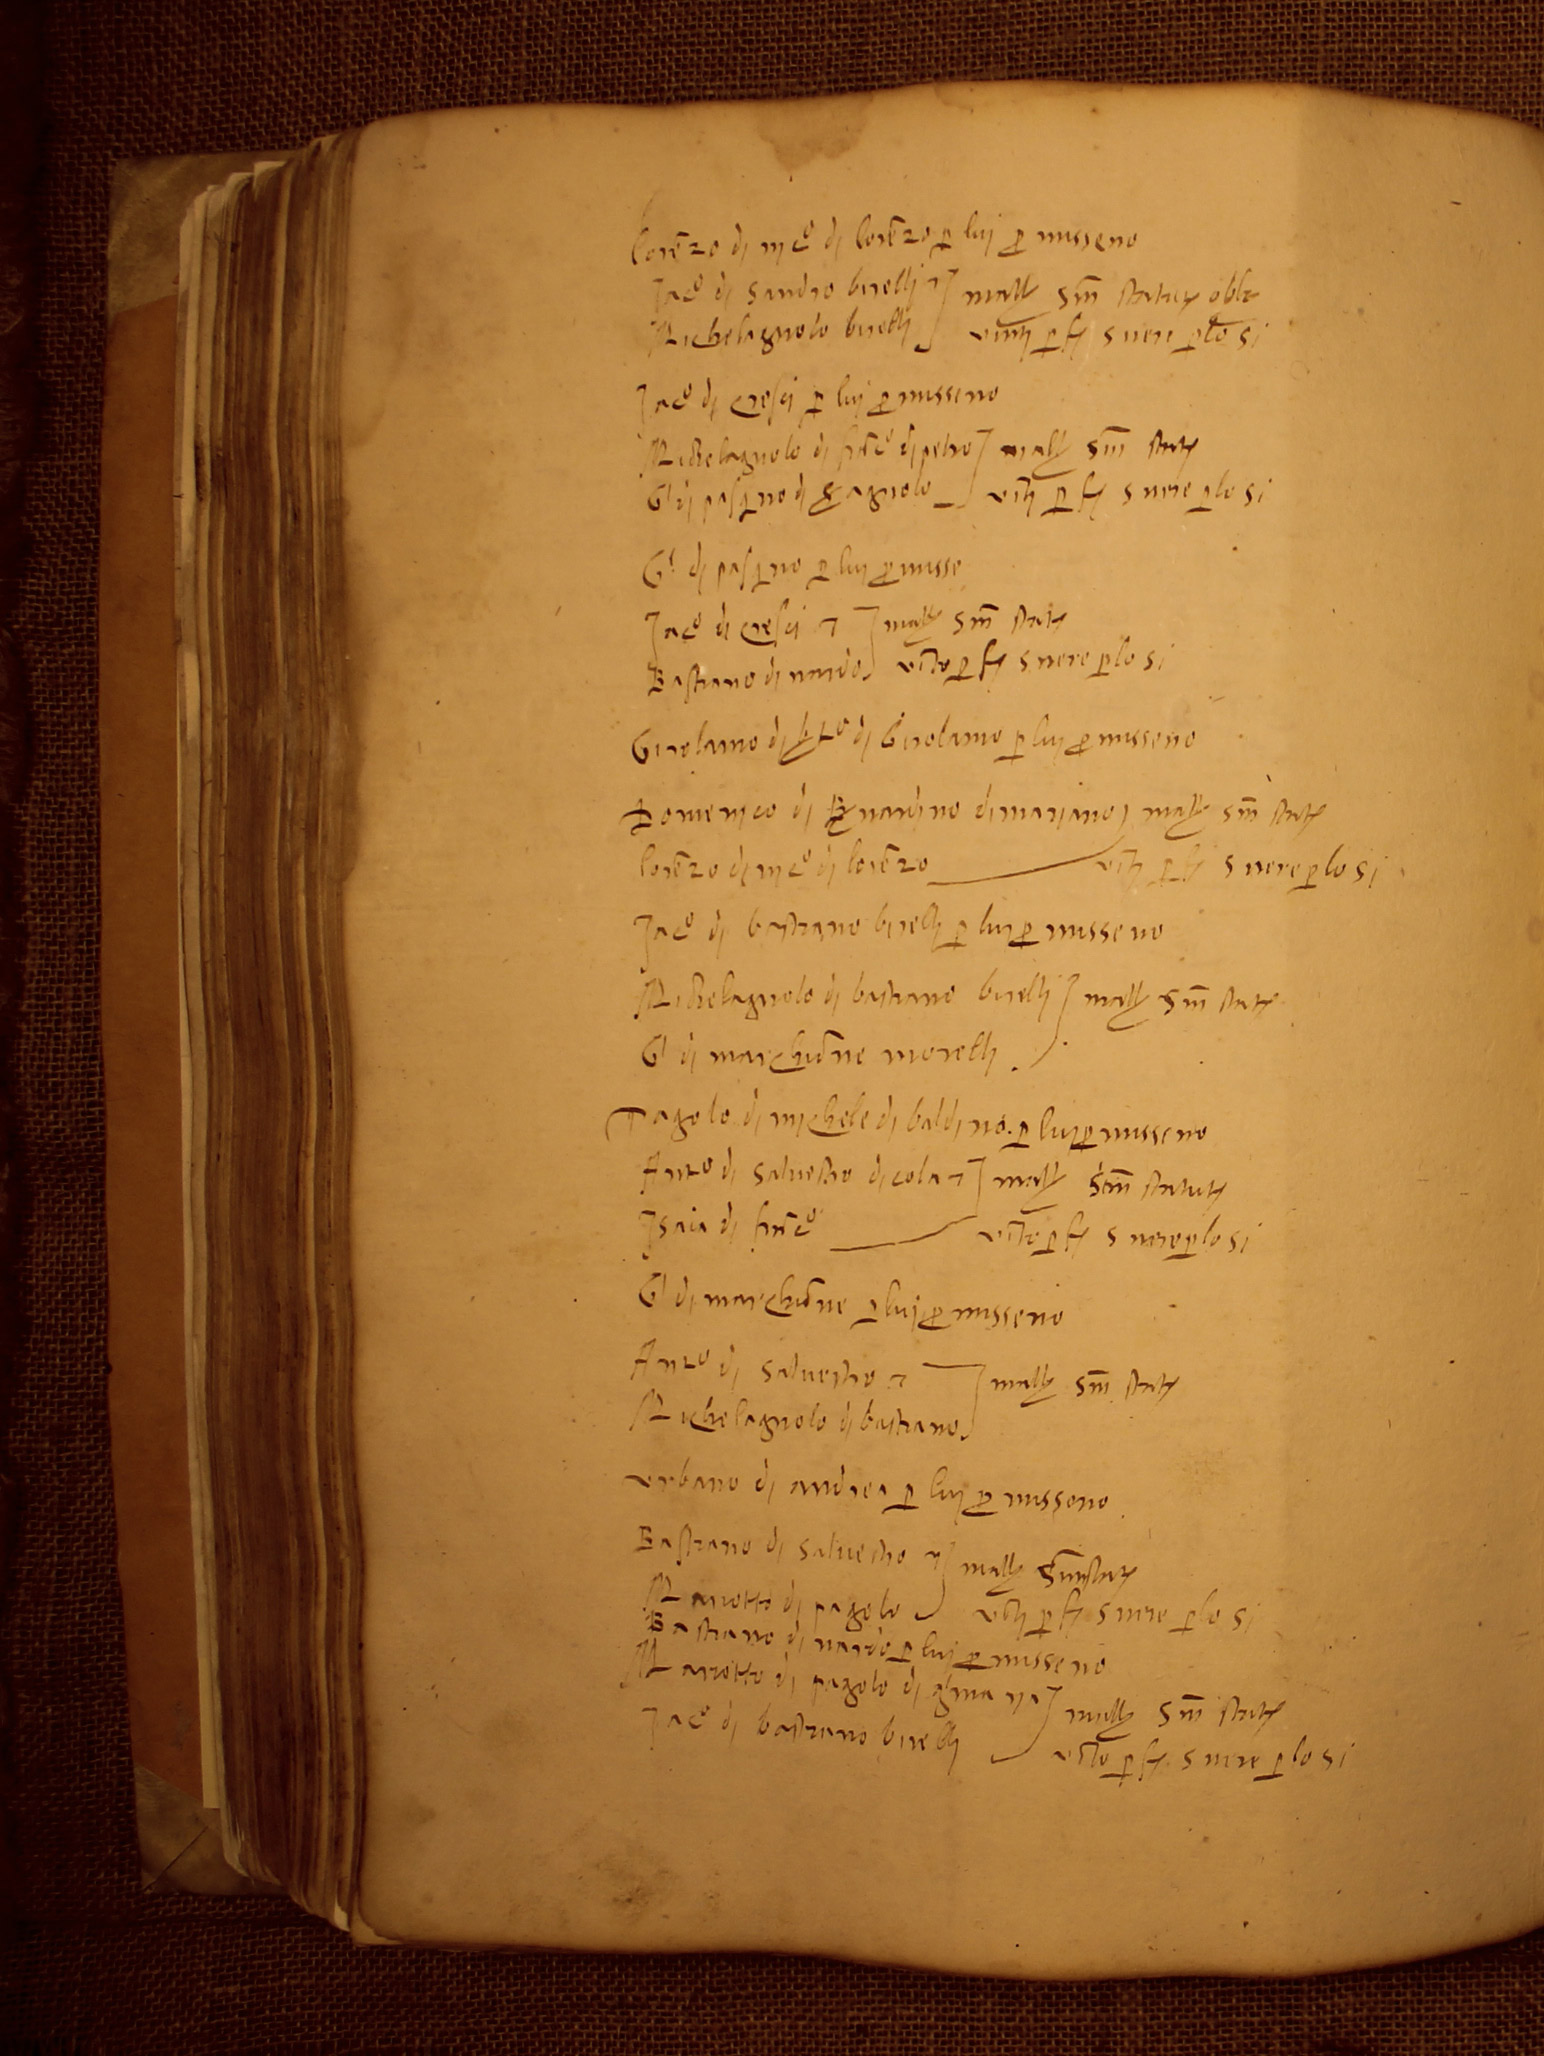 lorēzo di nic̊o di lorēzo p lui pmisseno
Jac̊o di sandro birelli et mallꝫ sm̄ statutꝫ obbl
Michelagnolo birelli vinti p s nere plo si
Jac̊o di cresci p lui pmisseno
Michelagnolo di frāc̊o di petro mallꝫ sm̄ statꝫ
Gi di pasqno di agnolo viti p s nere plo si
Gi di pasqno p lui pmisse
Jac̊o di cresci et mallꝫ sm̄ statꝫ
Bastiano di nardo vito p s nere plo si
Girolamo di di Girolamo p lui pmisseno
Domenico di Bernardino di mariano mallꝫ sm̄ statꝫ
lorēzo di nic̊o di lorēzo viti p s nere plo si
Jac̊o di bastiano birelli p lui pmisseno
Michelagnolo di bastiano birelli mallꝫ sm̄ statꝫ
Gi di marchiōne morelli
Pagolo di michele di baldino. p lui pmisseno
Anto di salvestro di cola et mallꝫ sm̄ statutꝫ
Isaia di frāc̊o vito p s nere plo si
Gi di marchiōne p lui pmisseno
Anto di salvestro et mallꝫ sm̄ statꝫ
Michelagnolo di bastiano
urbano di andrea p lui pmisseno
Bastiano di salvestro et mallꝫ sm̄ statꝫ
Mariotto di pagolo viti p s nere plo si
Bastiano di nardo p lui pmisseno
Mariotto di pagolo di mallꝫ sm̄ statꝫ
Jac̊o di bastiano birelli vito p s nere plo si